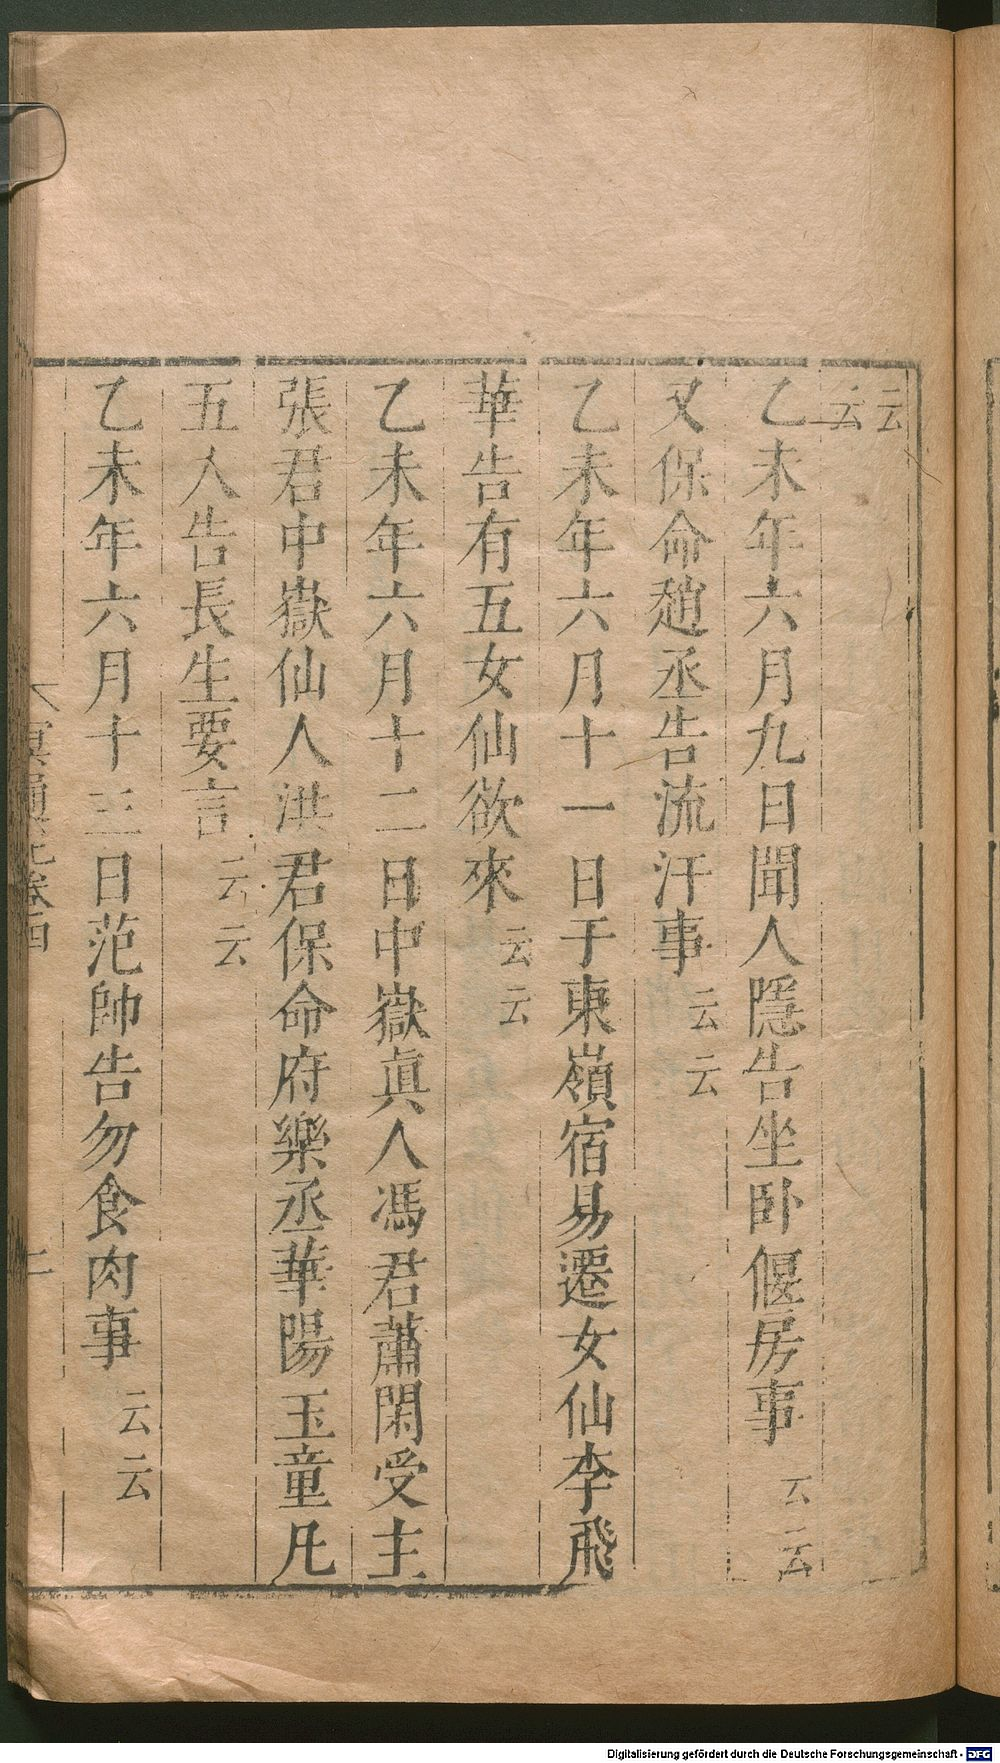 云云
乙未年六月九日聞人隱告坐卧偃房事云云
又保命趙丞告流汗事云云
乙未年六月十一日于東嶺宿易遷女仙李飛
華告有五女仙欲來云云
乙未年六月十二日中嶽眞人馮君蕭閑受主
張君中嶽仙人洪君保命府樂丞華陽玉童凡
五人告長生要言云云
乙未年六月十三日范帥告勿食肉事云云
冥通記卷四
二
Digitalisierung gefördert durch die Deutsche Forschungsgemeinschaft - DFG